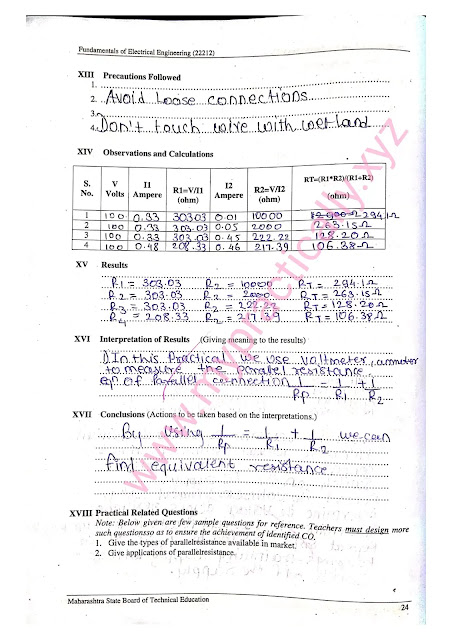 Fundamentals of Electrical Engineering (22212)
XIII Precautions Followed
1.
2. Avoid Loose connections
3.
4. Don't touch wire with wet land
XIV Observations and Calculations
S. No. V Volts I1 Ampere R1=V/I1 (ohm) I2 Ampere R2=V/I2 (ohm) RT=(R1*R2)/(R1+R2) (ohm)
1 100 0.33 30303 0.01 10000 294.1Ω
2 100 0.33 303.03 0.05 2000 263.15Ω
3 100 0.33 303.03 0.45 222.22 128.20Ω
4 100 0.48 208.33 0.46 217.39 106.38Ω
XV Results
R1 = 303.03 R2 = 10000 RT = 294.1Ω
R2 = 303.03 R2 = 2000 RT = 263.15Ω
R3 = 303.03 R2 = 222.22 RT = 128.20Ω
R4 = 208.33 R2 = 217.39 RT = 106.38Ω
XVI Interpretation of Results (Giving meaning to the results)
In this Practical we use voltmeter, ammeter
to measure the parallel resistance
eqn of Parallel connection 1/Rp = 1/R1 + 1/R2
XVII Conclusions (Actions to be taken based on the interpretations.)
By using 1/Rp = 1/R1 + 1/R2 we can
find equivalent resistance
XVIII Practical Related Questions
Note: Below given are few sample questions for reference. Teachers must design more
such questionsso as to ensure the achievement of identified CO.
1. Give the types of parallelresistance available in market.
2. Give applications of parallelresistance.
Maharashtra State Board of Technical Education
24
www.mypractically.xyz